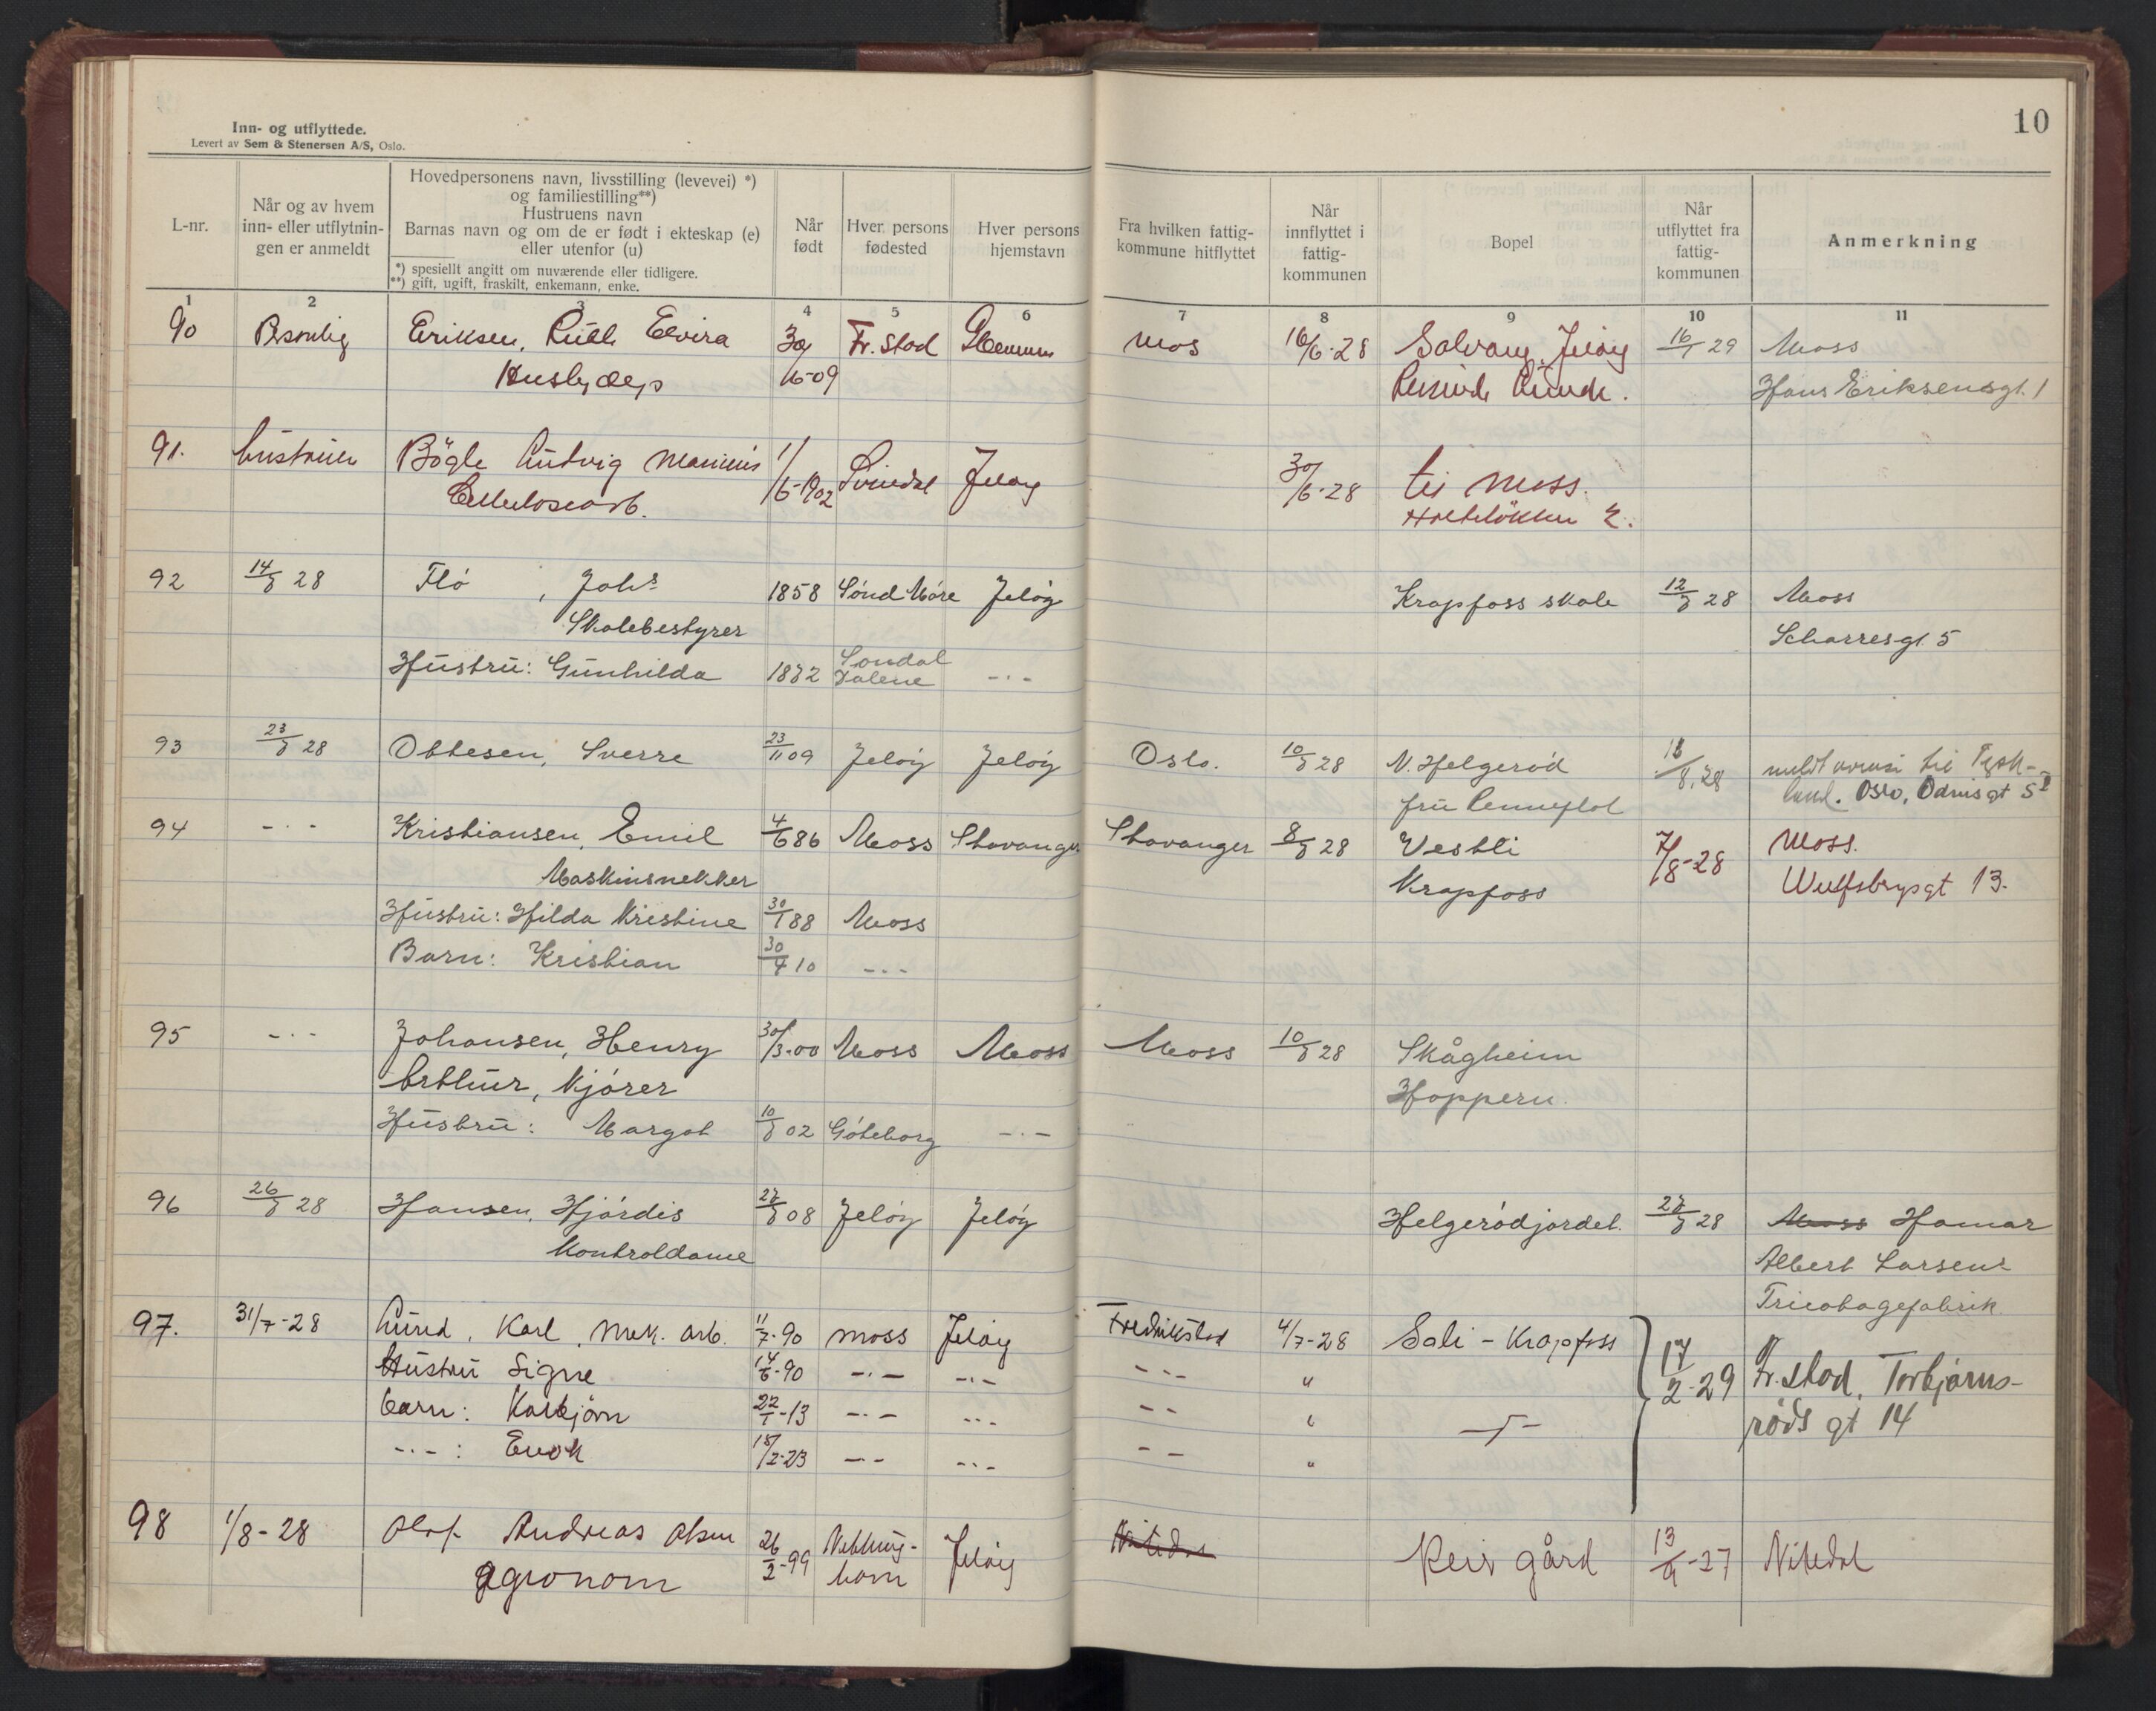 10
Inn- og utflyttede.
Levert av Sem & Stenersen A/S, Oslo.
L-nr.
Når og av hvem inn- eller utflytnin-gen er anmeldt
Hovedpersonens navn, livsstilling (levevei) *)
og familiestilling**)
Hustruens navn
Barnas navn og om de er født i ekteskap (e)
eller utenfor (u)
*) spesiellt angitt om nuværende eller tidligere.
**) gift, ugift, fraskilt, enkemann, enke.
Når født
Hver persons fødested
Hver persons hjemstavn
Fra hvilken fattig-kommune hitflyttet
Når innflyttet i fattig-kommunen
Bopel
Når utflyttet fra fattig-kommunen
Anmerkning
1 2 3 4 5 6 7 8 9 10 11
90 Personlig Eriksen, Ruth Elvira 30/6-09 Fr.stad Glemmen Mos 16/6-28 Solvang, Jeløy 16/1 29 Moss
Hushjelp Hans Eriksensgt. 1
91. hustruen Bögle Ludvig Marinius 1/6-1902 Svindal Jeløy 30/6-28 til Moss.
Cellulosearb.
92 14/7 28 Flö, Johs 1858 Sönd Möre Jelöy Krapfoss skole 12/7 28 Moss
Skolebestyrer Scharresgt. 5
Hustru: Gunhilda -·-
93 23/7 28 Ottesen, Sverre 23/11 09 Jelöy Jelöy Oslo. 10/7 28 N. Helgeröd /8.28
land. Oslo, Odinsgt 5
fru
94 -·- Kristiansen, Emil 4/6 86 Moss Stavanger Stavanger 8/7 28 Vestli 7/8-28 Moss.
Maskinsnekker Krapfoss Wulfsbrypgt 13.
Hustru: Hilda Kristine 30/1 88 Moss
Barn: Kristian 30/7 10 -·-
95 -·- Johansen, Henry 30/3-00 Moss Moss Moss 10/7 28 Skågheim
Arthur, kjörer Hoppern.
Hustru: Margot 10/7 02 Göteborg -·-
96 26/7 28 Hansen, Hjördis 27/7 08 Jelöy Jelöy Helgerödjordet. 27/7 28 Moss Hamar
Kontroldame Albert Larsens
Tricotagefabrik
97. 31/7-28 Lund, Karl, mek. arb. 11/7-90 Moss Jeløy Fredrikstad 4/7-28 Sali - Krapfoss 17/2-29 Fr.stad, Torbjørns-
Hustru Signe 14/6-90 -·- -·- -·- "
barn: Karbjörn 22/1-13 -·- -·- -- " røds gt 14
-·-: Enok 18/2-23 -·- -·- -- "
98 1/8-28 Olaf Andreas Olsen 26/2-99 Jeløy Nitedal Reir gård 13/9-27 Nitedal
agronom